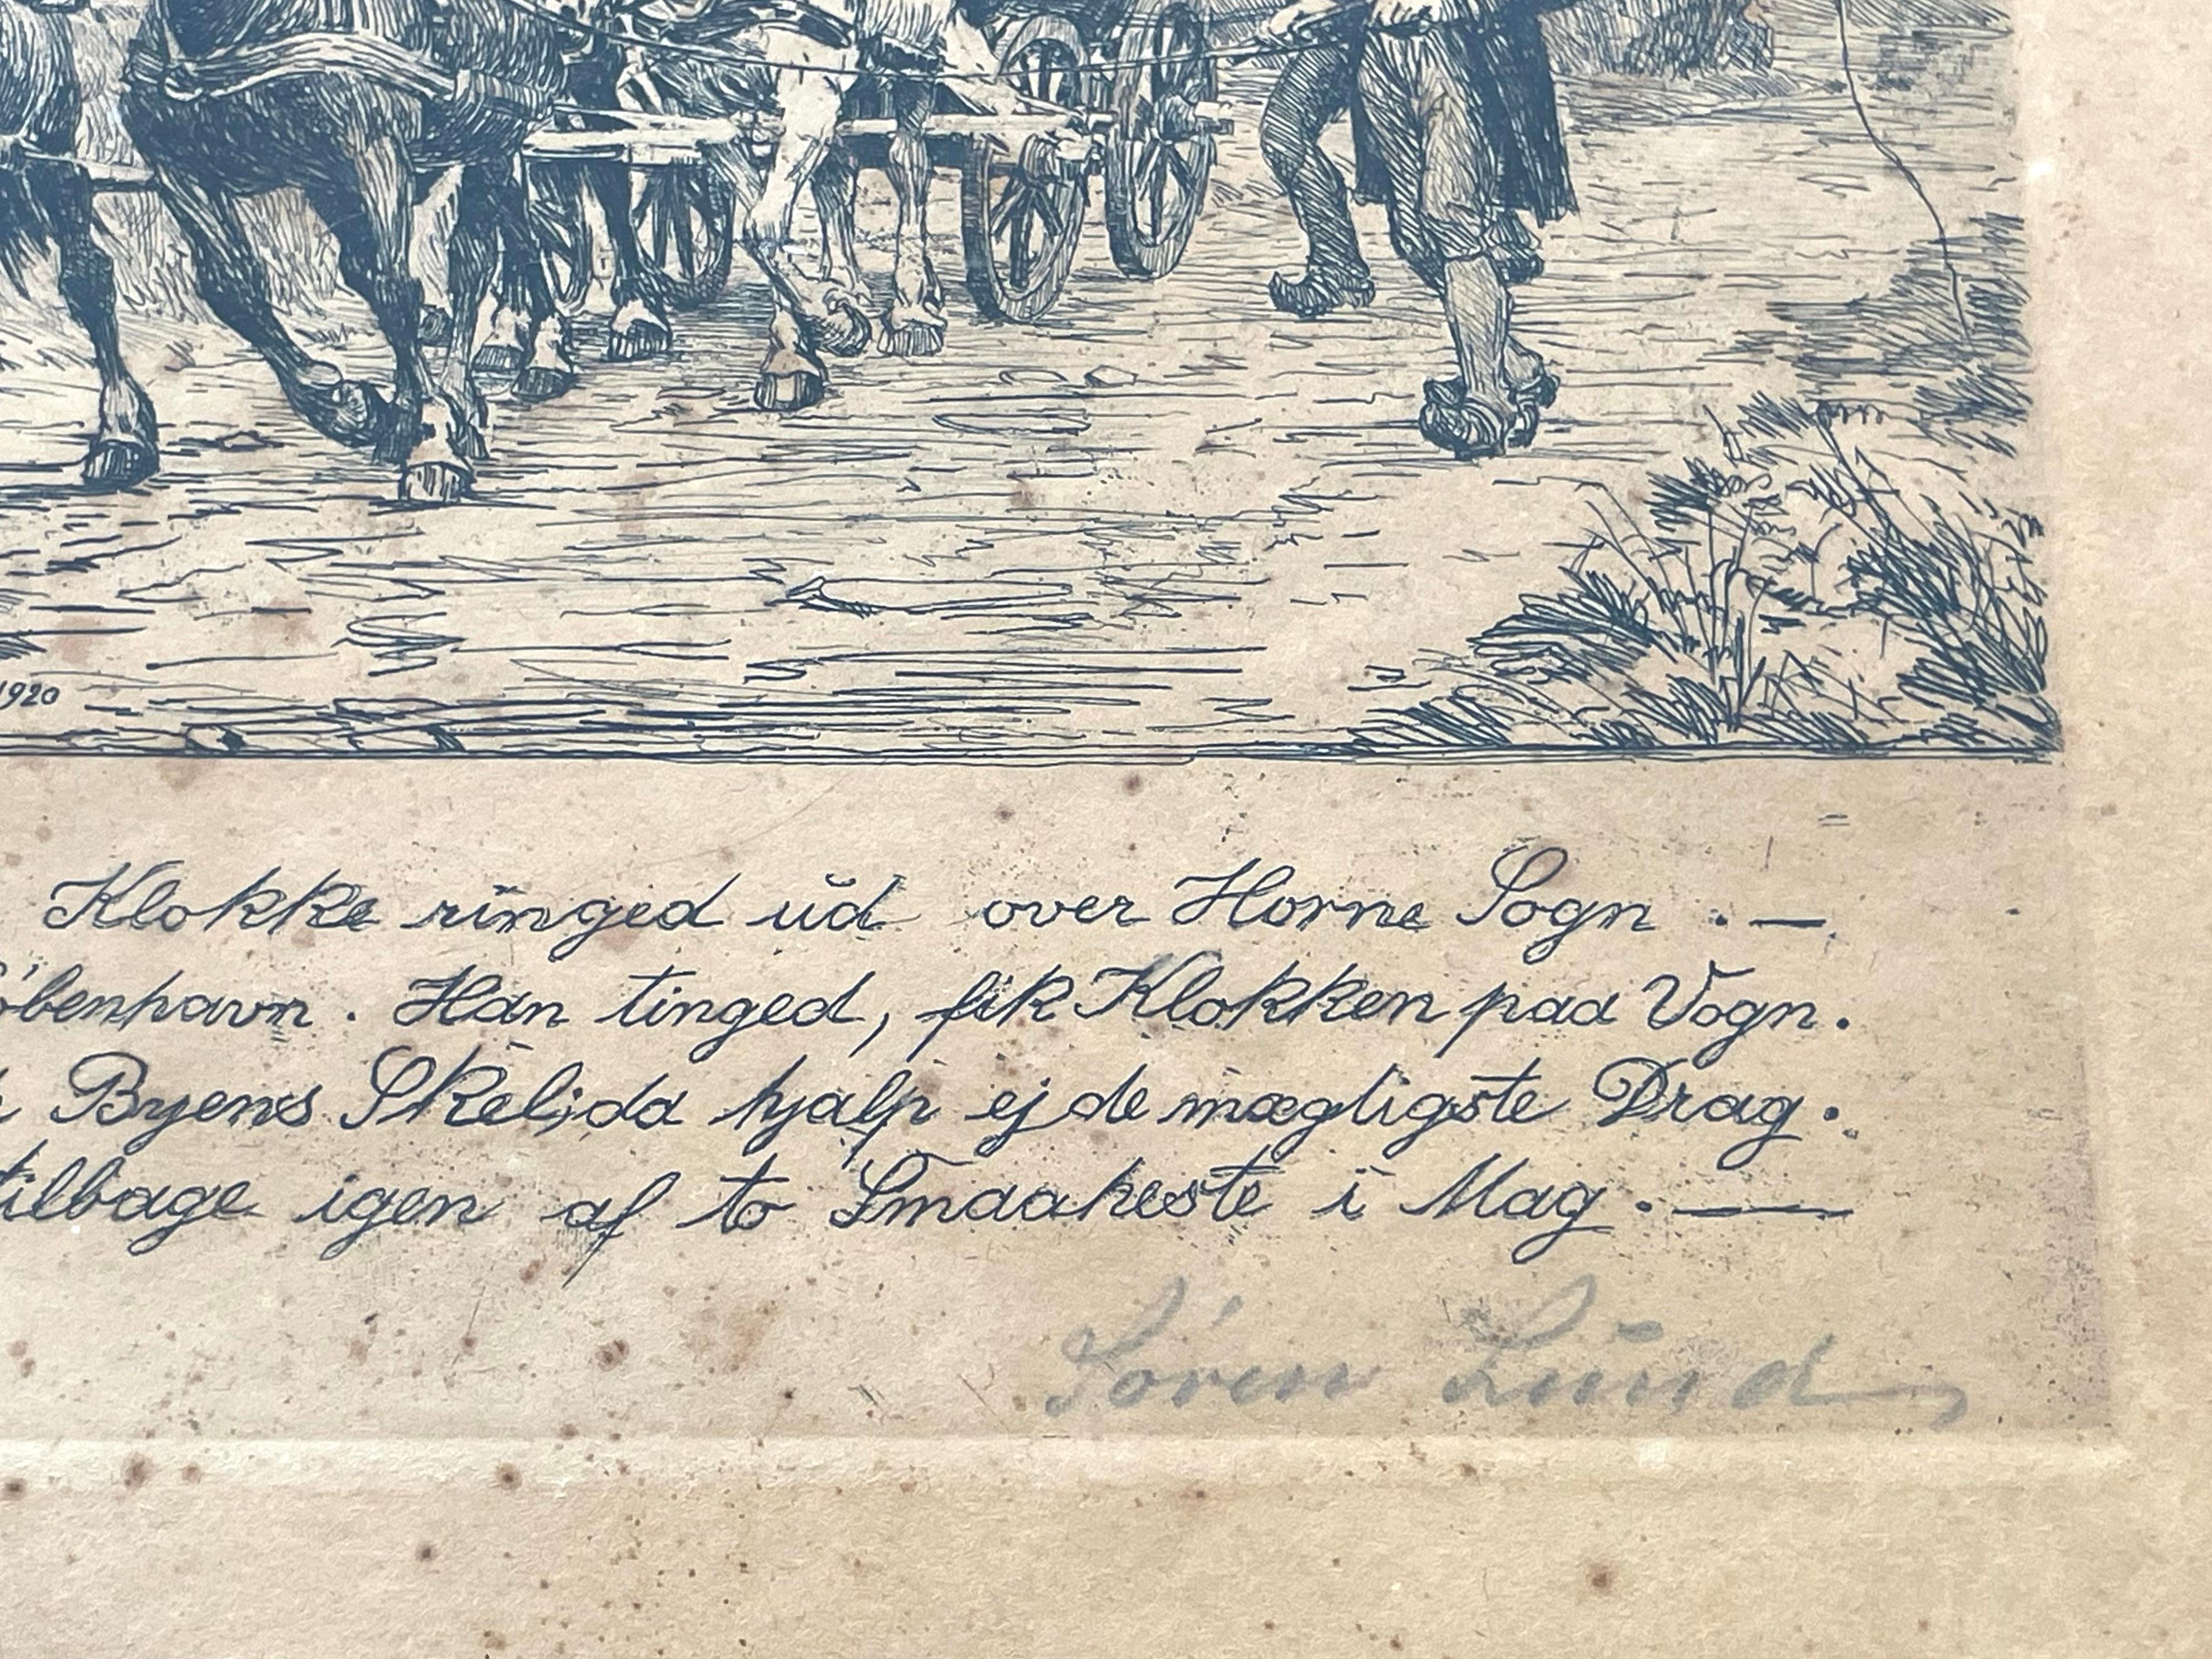 1920
Klokke ringed ud over Horne Sogn . —
øbenhavn . Han tinged, fik Klokken paa Vogn.
Byens Skel; da hjalp ej de mægtigste Drag.
tilbage igen af to Smaaheste i Mag. —
Søren Lund